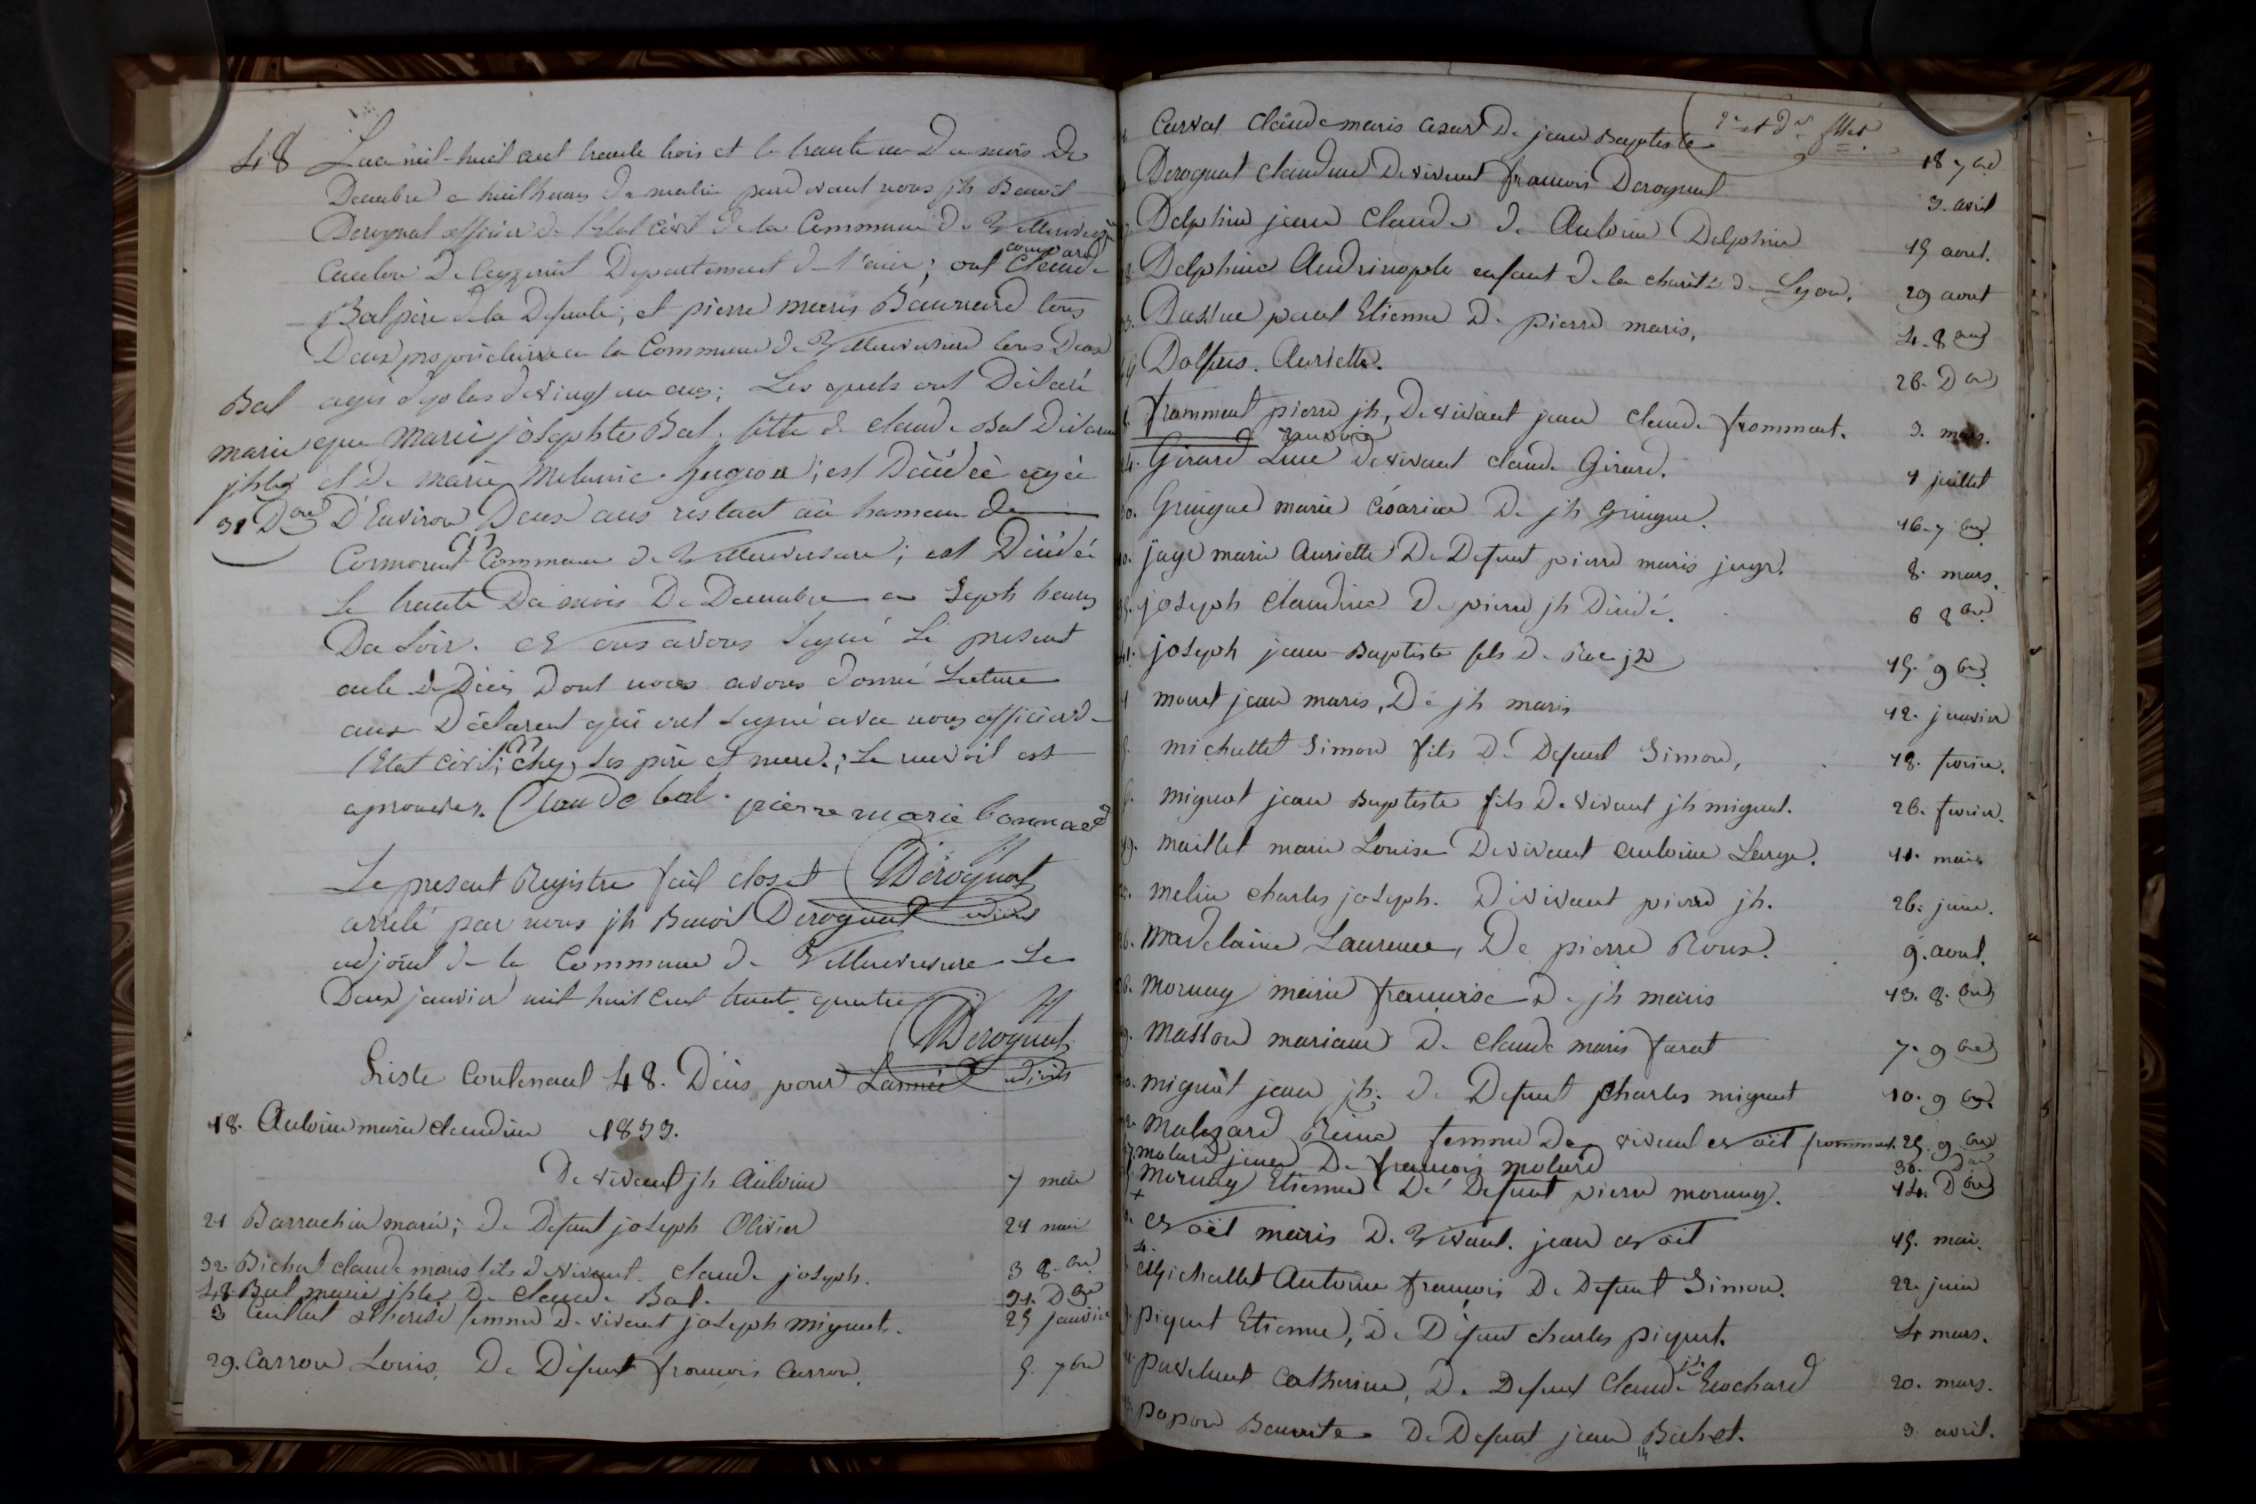 48 L'an mil-huit cent trente trois et le trente un Du mois De
Decembre a huit heures du matin pardevant nous jh Benoit
Derognat officier de l'Etat civil de la Commune de Villereversure
Canton De Ceyzeriat Departement de l'ain; ont comparu Claude
Bal père de la Defunte; et pierre marie Bauvard tous
Deux propriétaires en la Commune de Villereversure tous Deux
agés de plus de vingt un ans; Les quels ont Déclaré
que Marie josephte Bal, fille de Claude Bal Déclarant
Bal
marie
jhte
31 Dbre
et de marie Melanie hugon; est Décédée agée
D'Environ Deux ans restant au hameau de
Cormorent Commune de Villereversure; est Décédée
Le trente Du mois De Decembre a Septh heures
Du Soir. Et ous avons Signé Le present
acte de Décès Dont nous avons donné Lecture
aux Déclarent qui ont Signé avec nous officier de
l'Etat civil; chez Ses père et mere;
aprouvées. Claude bal. pierre marie bonnard
Derognat
adjoint
Le present Registre fait clos et
arrêté par nous jh Benoit Derognat
adjoint de la Commune de Villereversure Le
Deux janvier mil huit Cent trente quatre
Derognat
adjoint
Liste Contenant 48. Décès pour L'année
1833.
18. Antoine marie claudine
De vivant jh Antoine 7 mai
21 Barrachin marie; De Defunt joseph Olivier 24 mai
32 Bichat claude marie fils de vivant claude joseph. 3 8.bre
48 Bal marie jhte De Claude Bal. 31. Dbre
3 Cuillat thérèse femme De vivent joseph mignot. 25 janvier
29. Carron Louis, De Défunt françois Carron. 5. 7bre
2e et der fllet.
Curvat Claude marie cesar De jean Baptiste 18 7bre
Derognat Claudine De vivent françois Derognat 3. avril
Delphin jean Claude de Antoine Delphin 15 aout.
Delphine Andrinople enfant de la charité de Lyon. 29 aout
Dussue paul Etienne De pierre marie, 4. 8bre
Dalfus. Auriette. 26. Dbre
fromment pierre jh, De vivant jean claude fromment. 3. mars.
Girard Luce De vivant claude Girard. 1 juillet
Gringue marie Césarine De jh Gringue. 16. 7bre
jayr marie Auriette De Defunt pierre marie jayr. 8. mars.
joseph Claudine De pierre jh Décédé. 6 8bre
41. joseph jean-Baptiste fils De Roc jh 15. 9bre
1 monet jean marie, De jh marie 12. janvier
michallet Simon fils De Defunt Simon, 18. fevrier.
mignot jean Baptiste fils De vivant jh mignot. 26. fevrier.
maillet marie Louise De vivant Antoine Large. 11. mai
melin charles joseph. De vivant pierre jh. 26. juin.
Madelaine Laurence, De pierre Roux. 9. aout.
Mornay marie françoise De jh marie 13. 8.bre
Masson mariane De Claude marie farat 7. 9bre
mignot jean jh. De Defunt charles mignot 10. 9bre
Malezard Reine femme De vivant Noël fromment. 25. 9bre
molard jean De françois molard 30. Dbre
Mornay Etienne De Defunt pierre mornay. 14. Dbre
Noël marie De Vivant. jean Noël 15. mai.
Michallet Antoine françois De Defunt Simon. 22. juin
Piquet Etienne, De Défunt charles piquet. 4 mars.
Pavelaut Catherine, De Defunt Claude jh Brochard 20. mars.
Papon Benoite De Defunt jean Bichet. 3 avril.